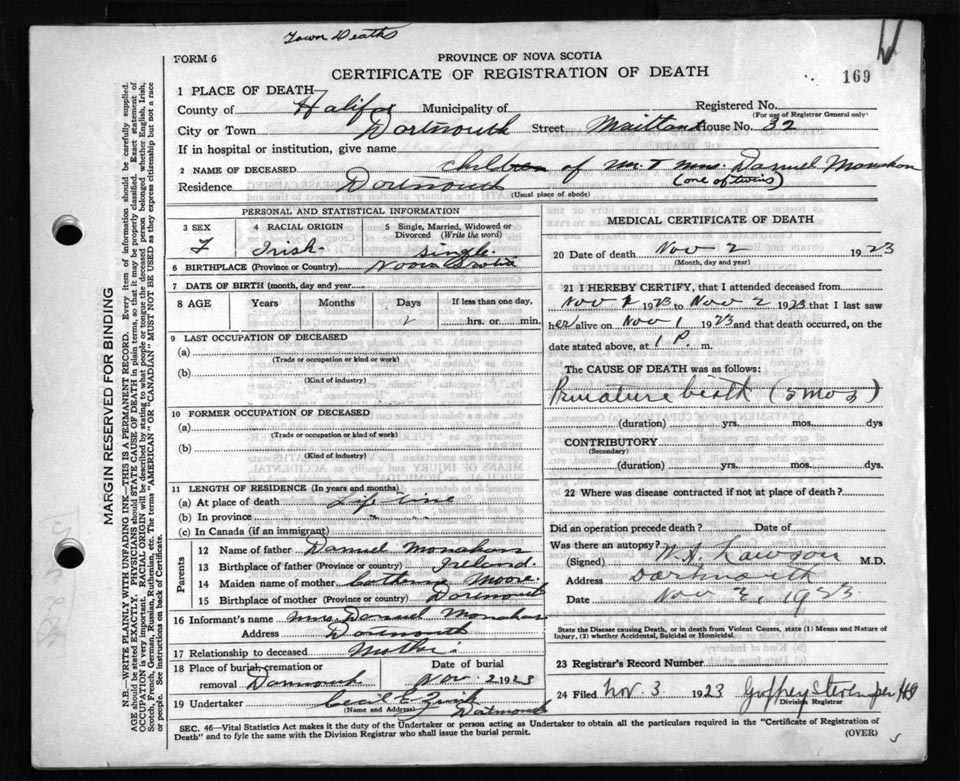 Town Deaths
FORM 6
PROVINCE OF NOVA SCOTIA
CERTIFICATE OF REGISTRATION OF DEATH
169
1 PLACE OF DEATH
County of Halifax Municipality of Registered No.
(For use of Registrar General only)
City or Town Dartmouth Street Maitland House No. 32
If in hospital or institution, give name
2 NAME OF DECEASED children of Mr. & Mrs. Daniel Monahan
(one of twins)
Residence Dartmouth
(Usual place of abode)
PERSONAL AND STATISTICAL INFORMATION
3 SEX
F
4 RACIAL ORIGIN
Irish
5 Single, Married, Widowed or Divorced (Write the word)
single
6 BIRTHPLACE (Province or Country) Nova Scotia
7 DATE OF BIRTH (month, day and year)
8 AGE Years Months Days If less than one day,
hrs. or min.
9 LAST OCCUPATION OF DECEASED
(a)
(Trade or occupation or kind or work)
(b)
(Kind of industry)
10 FORMER OCCUPATION OF DECEASED
(a)
(Trade or occupation or kind of work)
(b)
(Kind of industry)
11 LENGTH OF RESIDENCE (In years and months)
(a) At place of death Life time
(b) In province
(c) In Canada (if an immigrant)
Parents
12 Name of father Daniel Monahan
13 Birthplace of father (Province or country) Ireland.
14 Maiden name of mother Catherine Moore.
15 Birthplace of mother (Province or country) Dartmouth
16 Informant's name Mrs. Daniel Monahan
Address Dartmouth
17 Relationship to deceased Mother.
18 Place of burial, cremation or removal Dartmouth
Date of burial
Nov. 2 1923
19 Undertaker Cecil E. Zink
(Name and Address) Dartmouth
MEDICAL CERTIFICATE OF DEATH
20 Date of death Nov 2 1923
(Month, day and year)
21 I HEREBY CERTIFY, that I attended deceased from
Nov 1 1923 to Nov 2 1923 that I last saw
her alive on Nov 1 1923 and that death occurred, on the
date stated above, at 1 P. m.
The CAUSE OF DEATH was as follows:
Premature birth
(duration) yrs. mos. dys
CONTRIBUTORY
(Secondary)
(duration) yrs. mos. dys.
22 Where was disease contracted if not at place of death?
Did an operation precede death? Date of
Was there an autopsy?
(Signed) Lawson M.D.
Address Dartmouth
Date Nov 1923
State the Disease causing Death, or in death from Violent Causes, state (1) Means and Nature of
Injury, (2) whether Accidental, Suicidal or Homicidal.
23 Registrar's Record Number
24 Filed Nov. 3 1923
Division Registrar
SEC. 46—Vital Statistics Act makes it the duty of the Undertaker or person acting as Undertaker to obtain all the particulars required in the "Certificate of Registration of
Death" and to fyle the same with the Division Registrar who shall issue the burial permit.
(OVER)
MARGIN RESERVED FOR BINDING
N.B.—WRITE PLAINLY WITH UNFADING INK—THIS IS A PERMANENT RECORD. Every item of information should be carefully supplied.
AGE should be stated EXACTLY. PHYSICIANS should STATE CAUSE OF DEATH in plain terms, so that it may be properly classified. Exact statement of
OCCUPATION is very important. RACIAL ORIGIN will be described by stating to what people or tongue the deceased person belonged whether English, Irish,
Scotch, French, German, Russian, Ruthenian, etc. The terms "AMERICAN" OR "CANADIAN" MUST NOT BE USED as they express citizenship but not a race
or people. See instructions on back of Certificate.